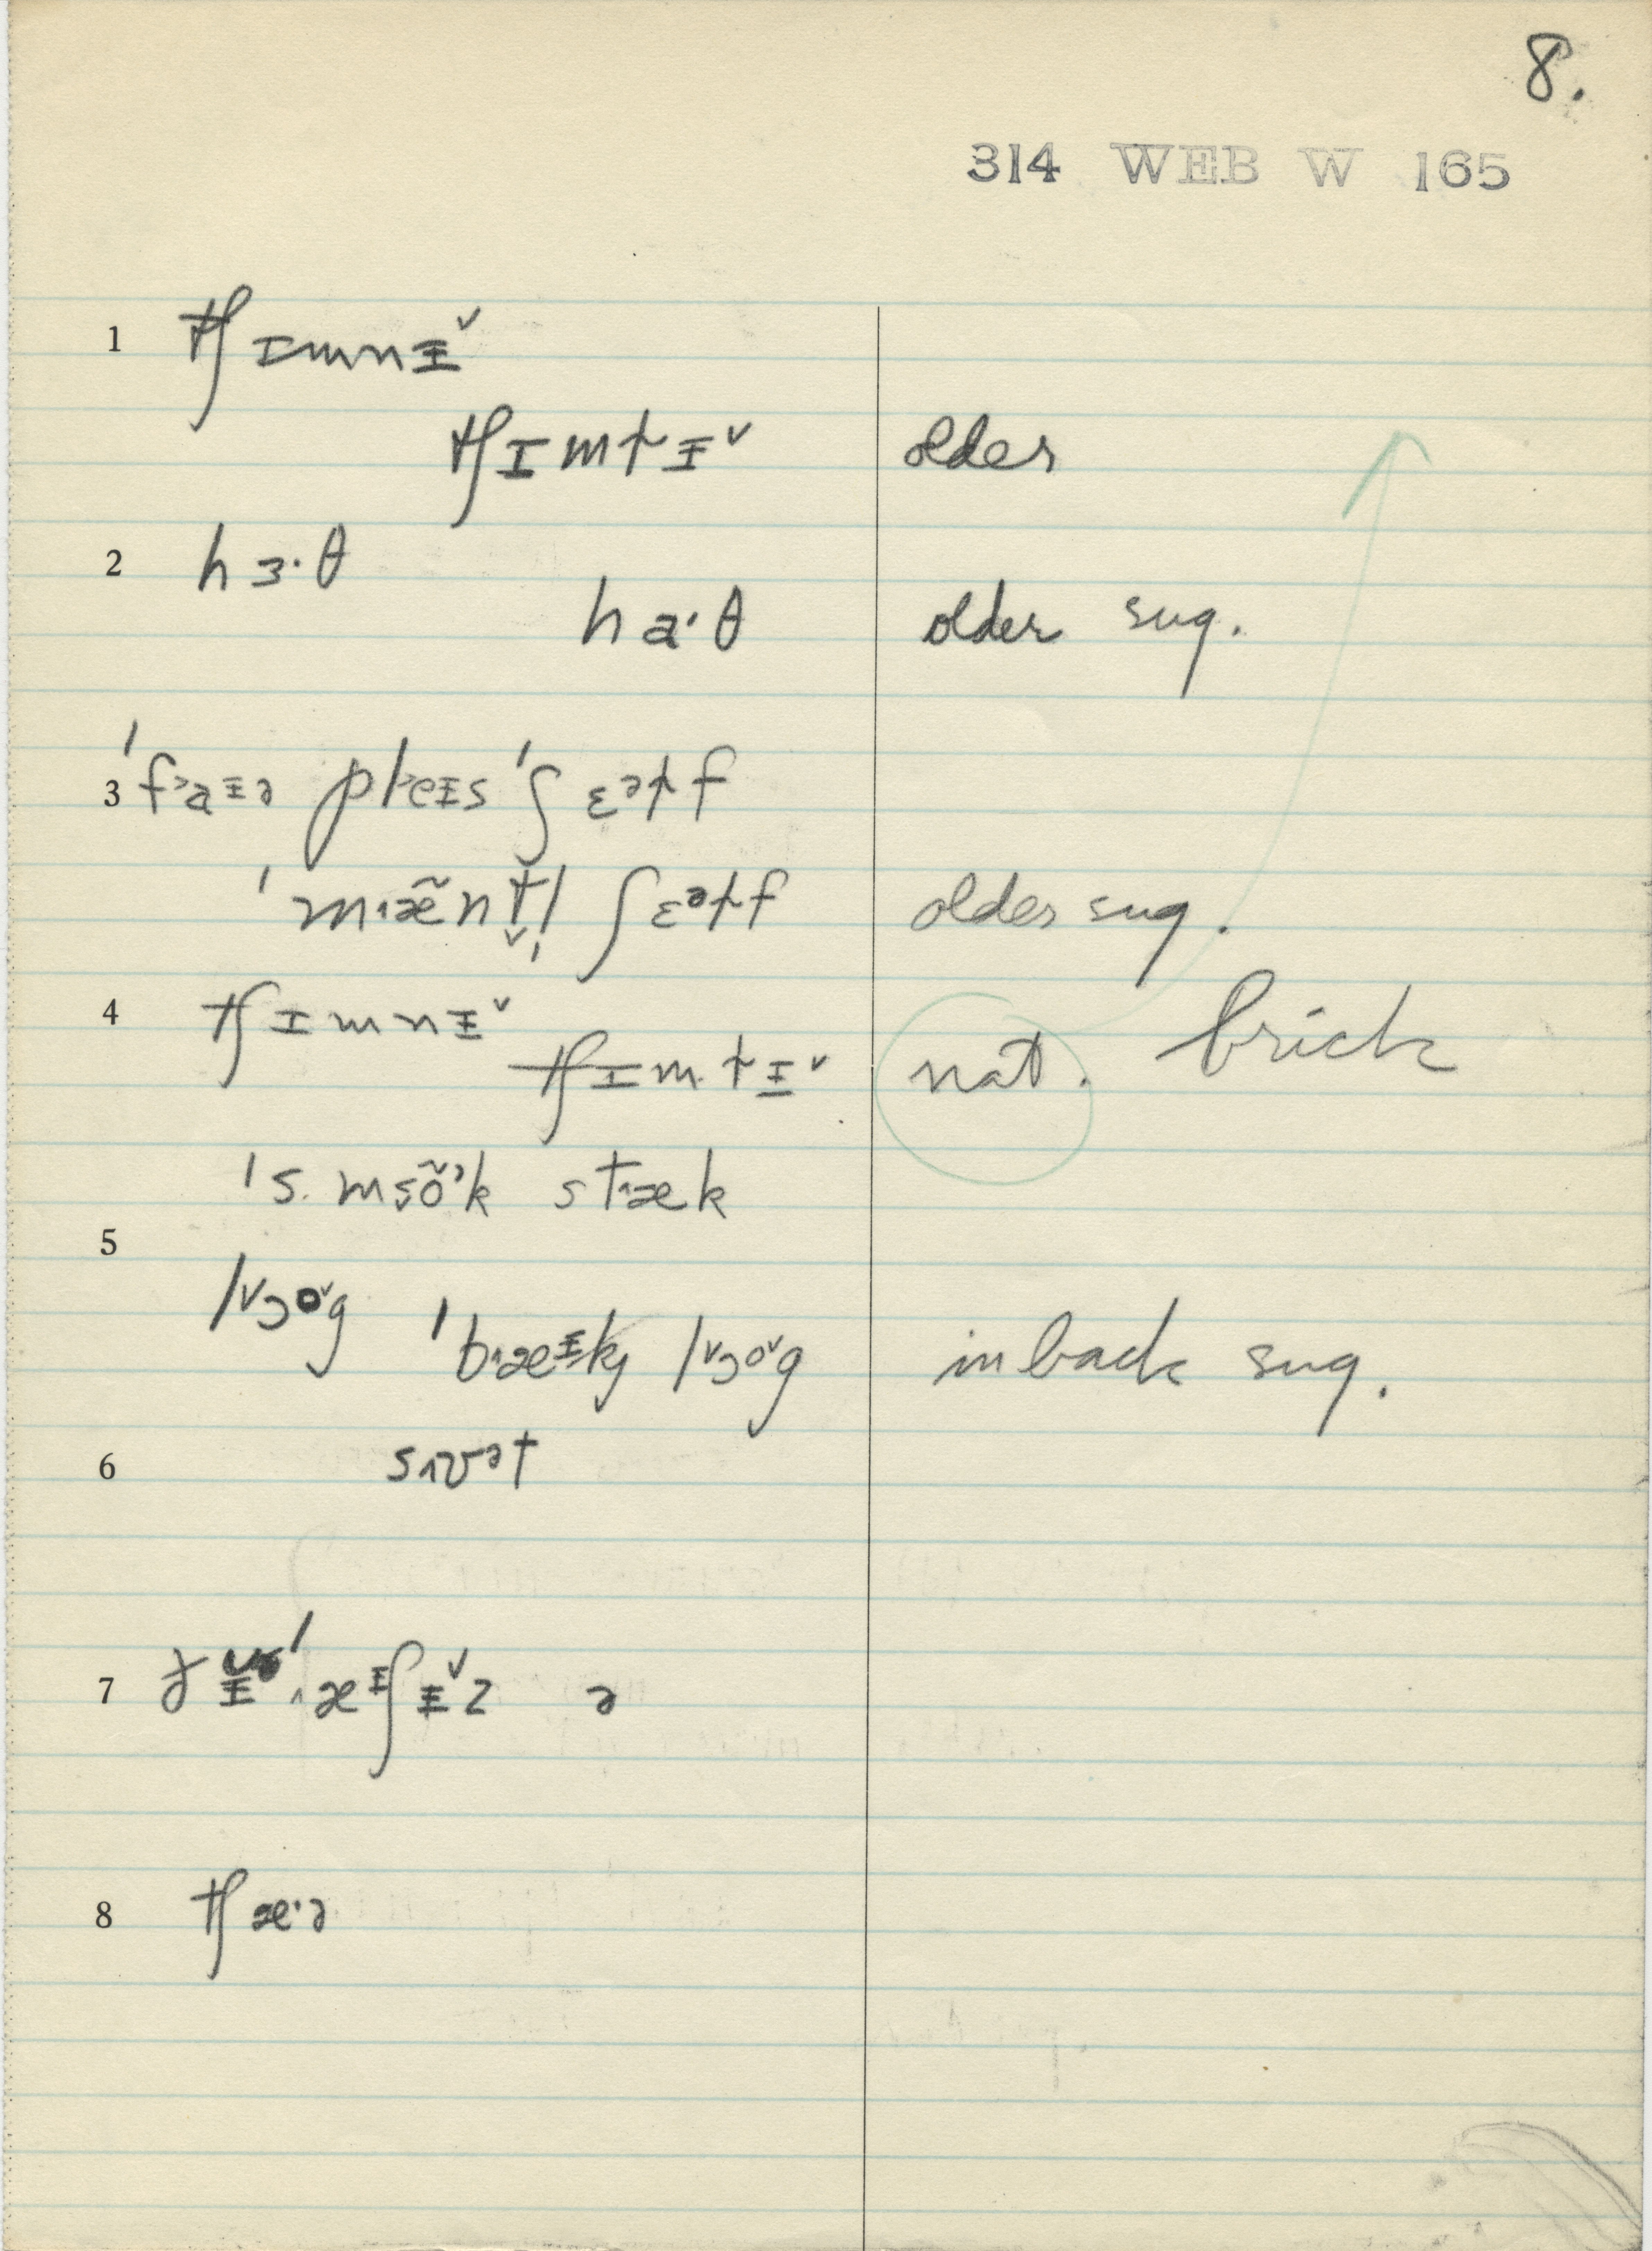 8.
314 WEB W 165
1 tʃɪmnɪ̵ˇ
tʃɪmtɪ̵ˇ older
2 hɜ·θ
ha·θ older sug.
3 ˈfᵊaɪ̵ə pleɪ̵s ˈʃɛᵊtf
ˈmæ̃ntl ʃɛᵊtf older sug.
4 tʃɪmnɪ̵ˇ
tʃɪmtɪ̵ˇ nat. brick
ˈs. msõˀk stæk
5
lˇɔoˇg ˈbæɪ̵kʝ lˇɔoˇg in back sug.
6 sʌvᵊt
7 ðɪ̵ ˈæɪ̵ʃɪ̵ˇz ə
8 tʃæ·ə